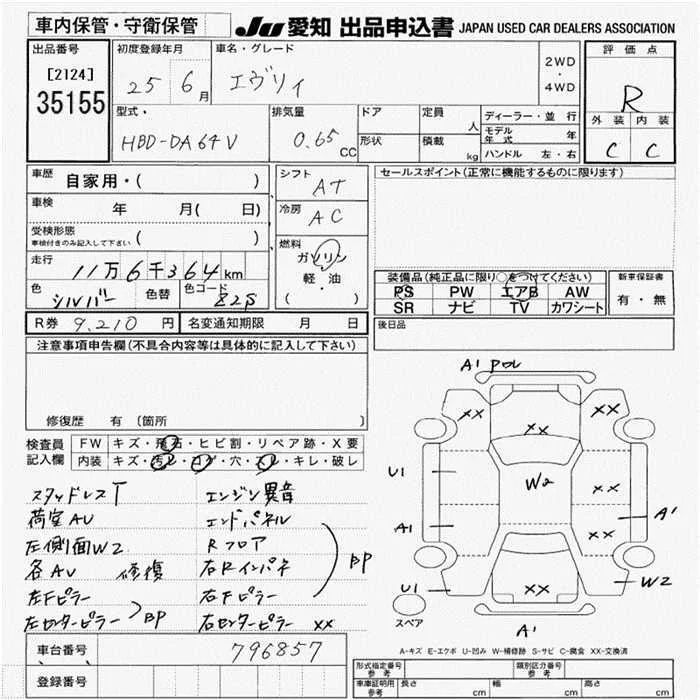 車内保管・守衛保管
JU 愛知 出品申込書 JAPAN USED CAR DEALERS ASSOCIATION
出品番号
[2124]
35155
初度登録年月
25 6月
車名・グレード
エヴリィ
2WD
・
4WD
評価点
R
外装 内装
C C
型式・
HBD-DA64V
排気量
0.65 CC
ドア
形状
定員 人
積載 kg
ディーラー・並行
モデル年式 年
ハンドル 左・右
車歴 自家用・( )
車検 年 月( 日)
受検形態
車検付きのみ記入して下さい ( )
走行 11万6千364km
色 シルバー 色替 色コード 82S
シフト AT
冷房 AC
燃料
ガソリン
軽・油
( )
セールスポイント(正常に機能するものに限ります)
装備品(純正品に限り○をつけてください)
PS PW エアB AW
SR ナビ TV カワシート
新車保証書
有・無
後日品
R券 9,210 円 名変通知期限 月 日
注意事項申告欄(不具合内容等は具体的に記入して下さい)
修復歴 有 〔箇所 〕
検査員
記入欄
FW キズ・飛石・ヒビ割・リペア跡・X要
内装 キズ・汚レ・コゲ・穴・スレ・キレ・破レ
スタッドレスT
荷室AU
左側面W2
各AU 修復
左Fピラー
左センターピラー BP
エンジン異音
エンドパネル
Rフロア
右Rインパネ
右Fピラー
右センターピラー XX
BP
A1 POL
XX
XX
XX
U1
W2
XX
A1
A1
XX
U1
XX
W2
A1
スペア
A-キズ E-エクボ U-凹み W-補修跡 S-サビ C-腐食 XX-交換済
車台番号 796857
登録番号
形式指定番号
参考
類別区分番号
参考
車庫証明用
参考
長さ cm 幅 cm 高さ cm